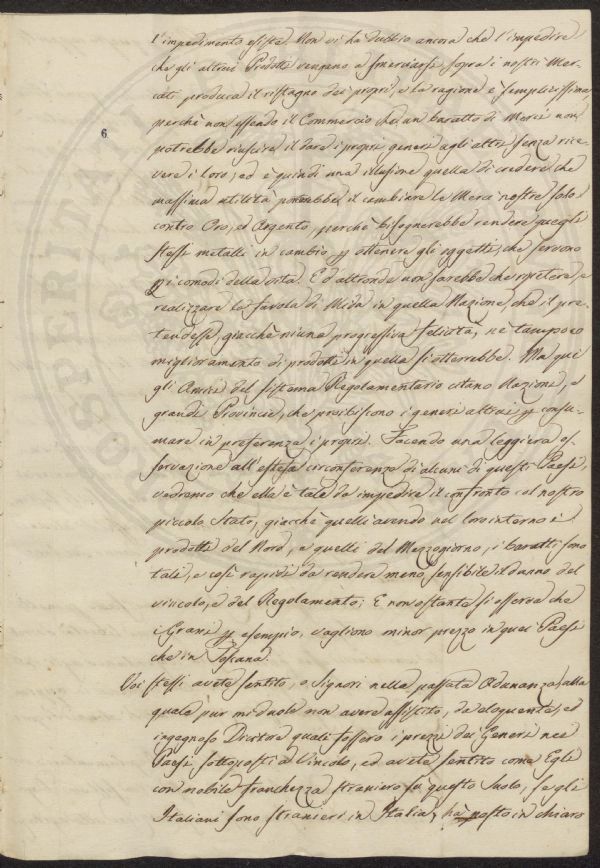 l'impedimento esista. Non vi ha dubbio ancora che l'impedire
che gli altrui Prodotti vengano a smerciarsi sopra i nostri Mer-
cati produca il ristagno dei propri, e la ragione è semplicissima,
6.
perchè non essendo il Commercio che un baratto di Merci non
potrebbe riuscire il dare i propri generi agli altri senza rice-
vere i loro; ed è quindi una illusione quella di credere che
massima utilità porterebbe il cambiare le Merci nostre solo
contro Oro, ed Argento, perchè bisognerebbe rendere quegli
stessi metalli in cambio p ottenere gli oggetti, che servono
pi comodi della vita. E d'altronde non sarebbe che ripetere, e
realizzare la favola di Mida in quella Nazione, che il pre-
tendesse, giacchè niuna progressiva felicità, nè tampoco
miglioramento di prodotti in quella si otterrebbe. Ma quì
gli Amici del sistema Regolamentario citano Nazioni, e
grandi Provincie, che proibiscono i generi altrui p consu-
mare in preferenza i propri. Facendo una leggiera os-
servazione all'estesa circonferenza di alcuni di questi Paesi,
vedremo che ella è tale da impedire il confronto col nostro
piccolo Stato, giacchè quelli avendo nel loro interno i
prodotti del Nord, e quelli del Mezzogiorno, i baratti sono
tali, e così rapidi da rendere meno sensibile il danno del
vincolo, e del Regolamento; E non ostante si osserva che
i Grani p esempio, vagliono minor prezzo in quei Paesi
che in Toscana.
Voi stessi avete sentito, o Signori nella passata Adunanza, alla
quale pur mi duole non avere assistito, da eloquente, ed
ingegnoso Oratore quali fossero i prezzi dei Generi nei
Paesi sottoposti a Vincolo, ed avete sentito come Egli
con nobile franchezza straniero su questo Suolo, se gli
Italiani sono stranieri in Italia, ha posto in chiaro